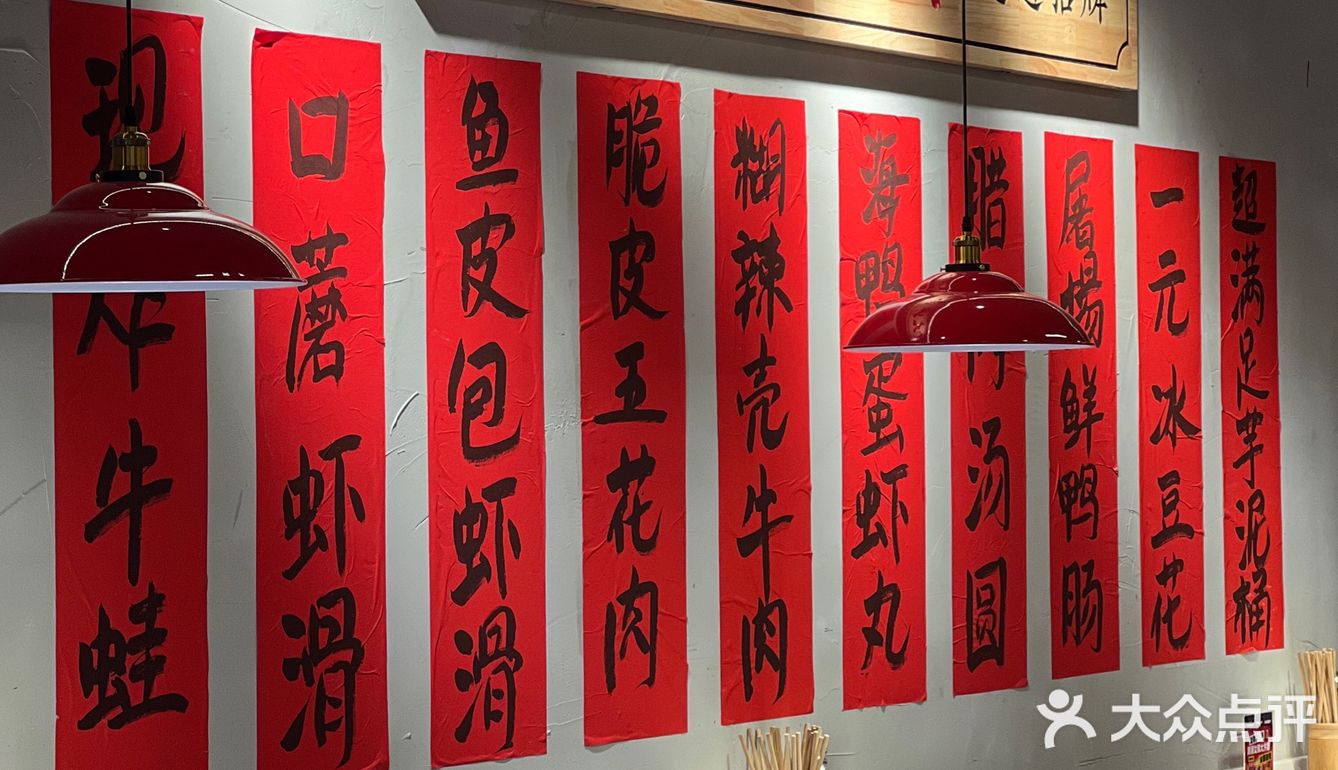 现炸牛蛙
口蘑虾滑
鱼皮包虾滑
脆皮五花肉
糊辣壳牛肉
海鸭蛋虾丸
腊汤圆
屠场鲜鸭肠
一元冰豆花
超满足芋泥桶
招牌
大众点评